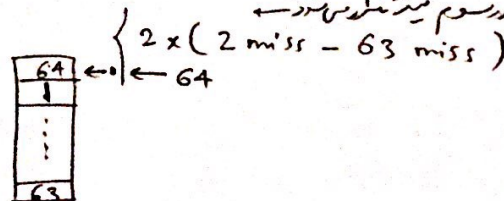 2 x ( 2 miss - 63 miss )
64 ← ← 64
63